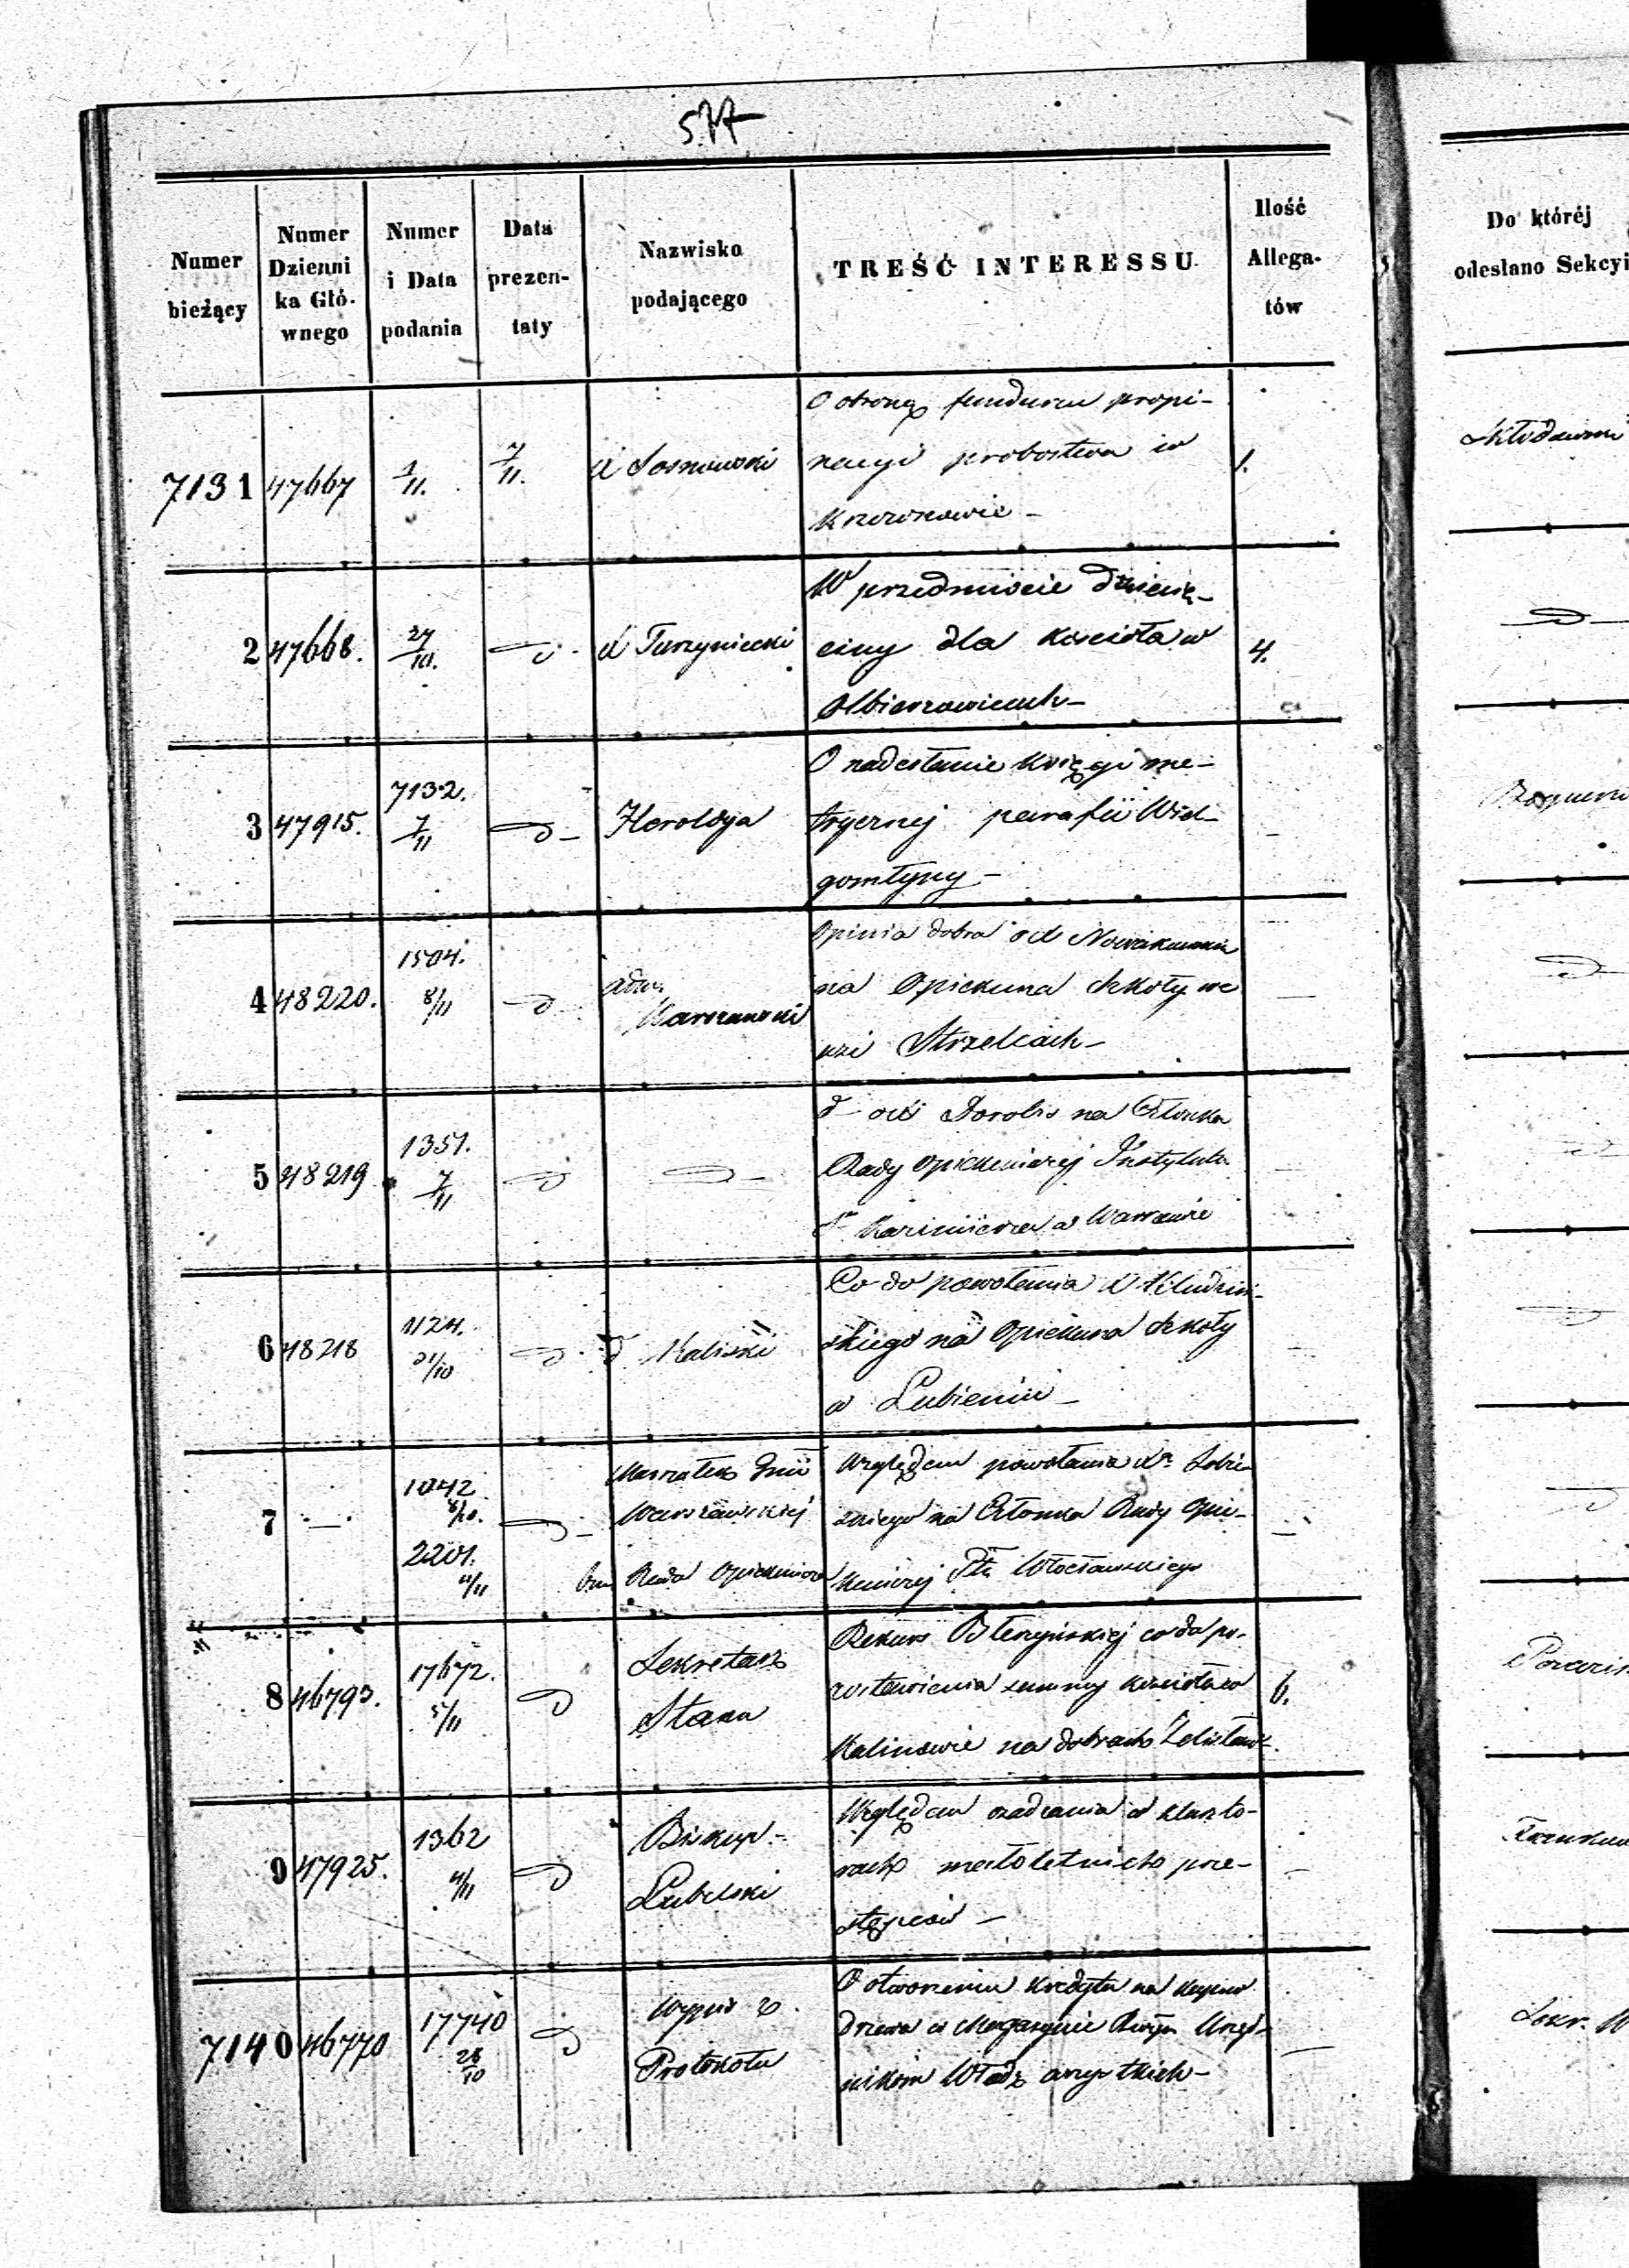 577
Numer bieżący
Numer Dzienni ka Głó- wnego
Numer i Data podania
Data prezen- taty
Nazwisko podającego
TREŚĆ INTERESSU
Ilość Allega- tów
Do któréj odesłano Sekcyi
7131 47667 1/11. 7/11. X Sosnowski
O obronę funduszu propi-
nacyi probostwa w
1.
2 47668. 27/10. d X Turzyniecki
W przedmiocie dziesię-
ciny dla kościoła w
Olbierzowicach
4.
3 47915. 7132. 7/11 d Heroldya
O nadesłanie księgi me-
trycznej parafii Wiel-
gomłyny
4 48220. 1504. 8/11 d
Warszawski
Opinia dobra o X
na Opiekuna szkoły we
wsi Strzelcach
5 48219 1351. 7/11 d d
na Członka
Rady Opiekuńczej Instytutu
Kazimierza w Warszawie
6 48218 1124. 31/10 d d Kaliski
Co do powołania X
skiego na Opiekuna szkoły
w Lubieniu
7 — 1042 8/10. d Marszałek Gnii
Warszawskiej
2201. 4/11 Rada Opiekuńcza
Względem powołania
na Członka Rady Opie-
kuńczej Ptu Włocławskiego
8 46793. 17672. 5/11 d Sekretarz
Stanu
Rekurs co do po-
zostawienia summy kościoła w
Kalinowie na dobrach
6.
9 47925. 1362 4/11 d Biskup
Lubelski
Względem osadzania w klaszto-
rach małoletnich prze-
stępców
7140 46770 17740 28/10 d Wypis z
Protokołu
O otworzeniu kredytu na kupno
drzewa w Magazynie Urzęd-
nikom Władz wszystkich